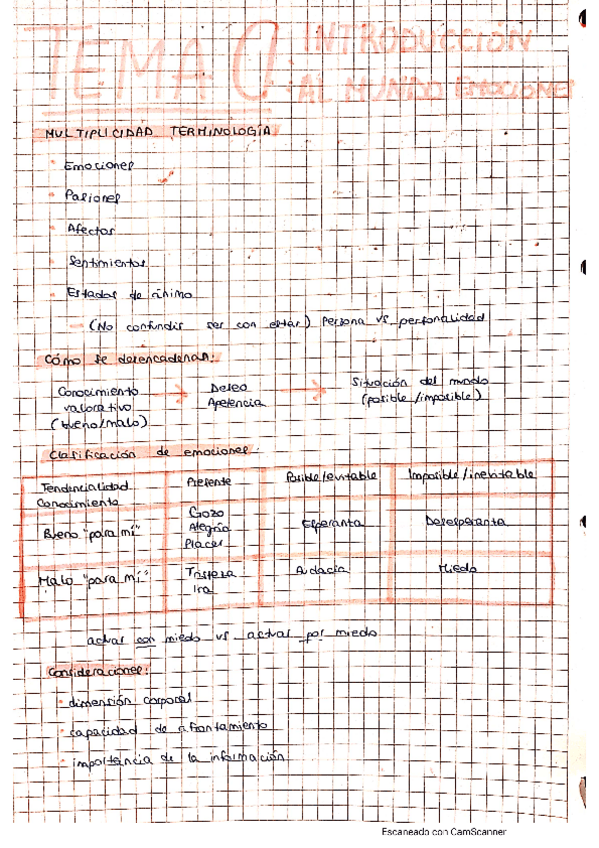 TEMA 0: INTRODUCCIÓN
AL MUNDO EMOCIONES
MULTIPLICIDAD TERMINOLOGÍA
Emociones
Pasiones
Afectos
Sentimientos
Estados de ánimo
(No confundir ser con estar) Persona vs personalidad
Cómo se desencadenan:
Conocimiento valorativo (bueno/malo) → Deseo Apetencia → Situación del mundo (posible/imposible)
Clasificación de emociones
Tendencialidad Conocimiento | Presente | Posible/evitable | Imposible/inevitable
Bueno "para mí" | Gozo Alegría Placer | Esperanza | Desesperanza
Malo "para mí" | Tristeza Ira | Audacia | Miedo
actuar con miedo vs actuar por miedo
Consideraciones:
dimensión corporal
capacidad de afrontamiento
importancia de la información
Escaneado con CamScanner